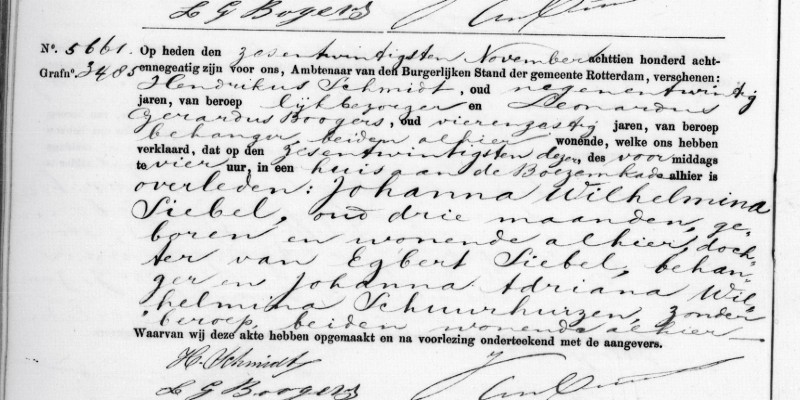 L G Bogers
No. 5661. Op heden den zesentwintigsten November achttien honderd acht-
Grafno. 3485 ennegentig zijn voor ons, Ambtenaar van den Burgerlijken Stand der gemeente Rotterdam, verschenen:
Hendrikus Schmidt, oud negenentwintig
jaren, van beroep lijkbezorger en Leonardus
Gerardus Boogers, oud vierenzestig jaren, van beroep
behanger, beiden alhier wonende, welke ons hebben
verklaard, dat op den zesentwintigsten dezer, des voormiddags
te vier uur, in een huis aan de Boezemkade alhier is
overleden: Johanna Wilhelmina
Siebel, oud drie maanden, ge-
boren en wonende alhier, doch-
ter van Egbert Siebel, behan-
ger en Johanna Adriana Wil-
helmina Schuurhuizen, zonder
beroep, beiden wonende alhier
Waarvan wij deze akte hebben opgemaakt en na voorlezing onderteekend met de aangevers.
H. Schmidt
L G Boogers